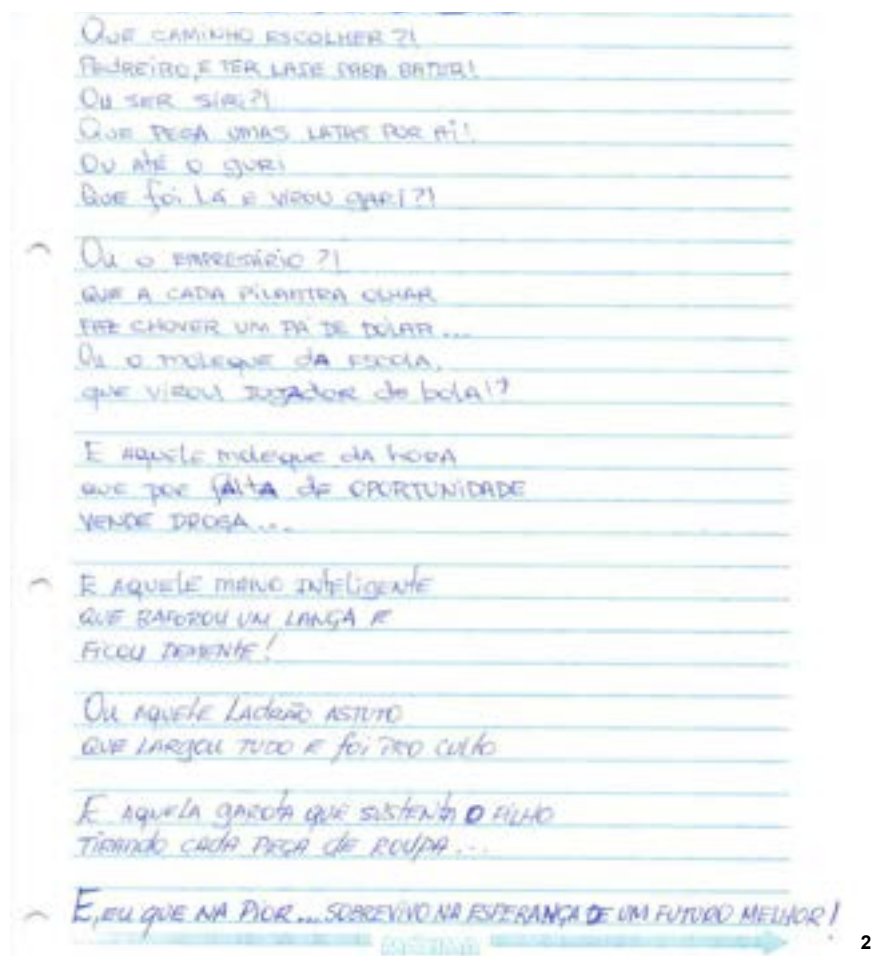 QUE CAMINHO ESCOLHER?!
PEDREIRO, E TER LAJE PARA BATER!
OU SER SIRI?!
QUE PEGA UMAS LATAS POR AÍ!
OU ATÉ O GURI
QUE foi LÁ E VIROU GARI?!
OU O EMPRESÁRIO?!
QUE A CADA PILANTRA OLHAR
FAZ CHOVER UM PÁ DE DÓLAR...
OU O MOLEQUE dA ESCOLA,
que VIROU JOGADOR de bolA!?
E AQUELE moleque dA hORA
QUE POR fALTA dE OPORTUNIDADE
VENDE DROGA...
E AQUELE MANO INTELIGENTE
QUE BAFOROU UM LANÇA E
FICOU DEMENTE!
OU AQUELE LADRÃO ASTUTO
QUE LARGOU TUDO E foi PRO CULTO
E AQUELA GAROTA QUE SUSTENTA O FILHO
TIRANDO CADA PEÇA dE ROUPA...
E, EU QUE NA PIOR... SOBREVIVO NA ESPERANÇA DE UM FUTURO MELHOR!
2